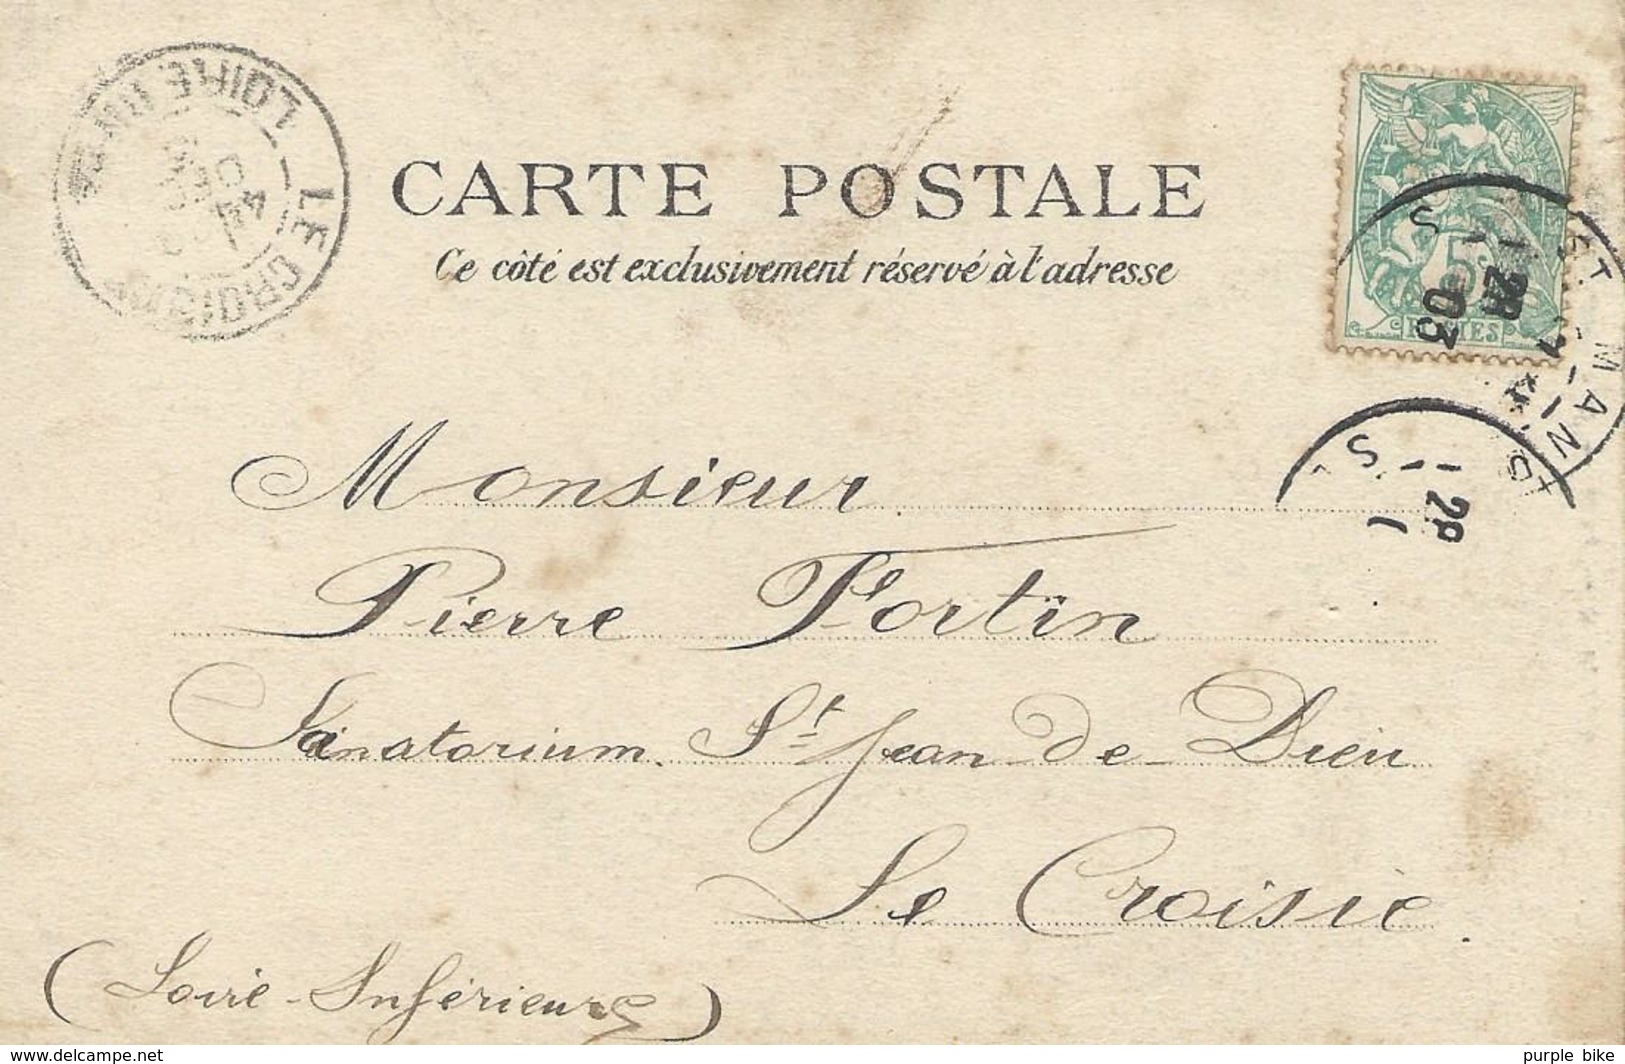 LE CROISIC
LOIRE INF
CARTE POSTALE
Ce côté est exclusivement réservé à l'adresse
5
POSTES
ST MAN
03
Monsieur
Pierre Fortin
Sanatorium. St Jean de Dieu
Le Croisic.
(Loire-Inférieure)
www.delcampe.net
purple bike